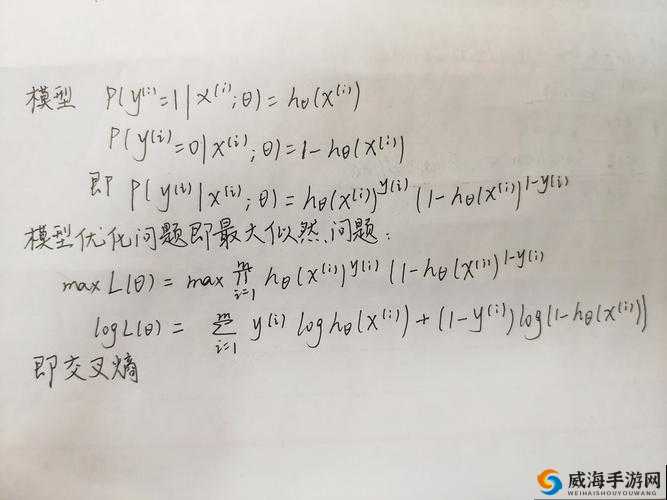 模型 P(y⁽ⁱ⁾=1|x⁽ⁱ⁾;θ)=hθ(x⁽ⁱ⁾)
P(y⁽ⁱ⁾=0|x⁽ⁱ⁾;θ)=1-hθ(x⁽ⁱ⁾)
即 P(y⁽ⁱ⁾|x⁽ⁱ⁾;θ)=hθ(x⁽ⁱ⁾)^y⁽ⁱ⁾ (1-hθ(x⁽ⁱ⁾)^1-y⁽ⁱ⁾
模型优化问题即最大似然问题:
max L(θ) = max ∏ᵢ₌₁ᵐ hθ(x⁽ⁱ⁾)^y⁽ⁱ⁾ (1-hθ(x⁽ⁱ⁾)^1-y⁽ⁱ⁾
logL(θ) = ∑ᵢ₌₁ᵐ y⁽ⁱ⁾ loghθ(x⁽ⁱ⁾)+(1-y⁽ⁱ⁾)log(1-hθ(x⁽ⁱ⁾))
即交叉熵
威海手游网
WEIHAISHOUYOUWANG